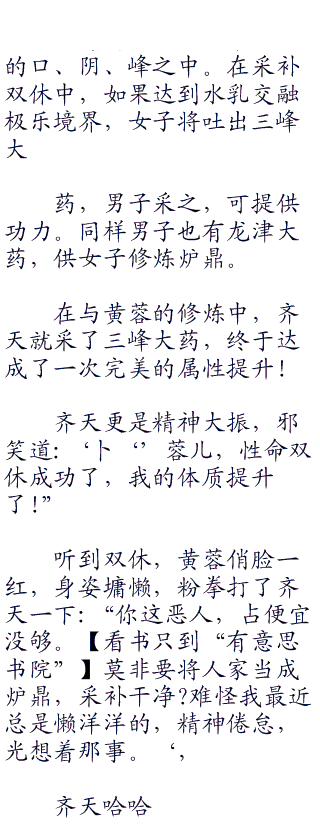 的口、阴、峰之中。在采补
双休中，如果达到水乳交融
极乐境界，女子将吐出三峰
大
药，男子采之，可提供
功力。同样男子也有龙津大
药，供女子修炼炉鼎。
在与黄蓉的修炼中，齐
天就采了三峰大药，终于达
成了一次完美的属性提升！
齐天更是精神大振，邪
笑道：‘卜‘’蓉儿，性命双
休成功了，我的体质提升
了！”
听到双休，黄蓉俏脸一
红，身姿墉懒，粉拳打了齐
天一下：“你这恶人，占便宜
没够。【看书只到“有意思
书院”】莫非要将人家当成
炉鼎，采补干净？难怪我最近
总是懒洋洋的，精神倦怠，
光想着那事。‘，
齐天哈哈